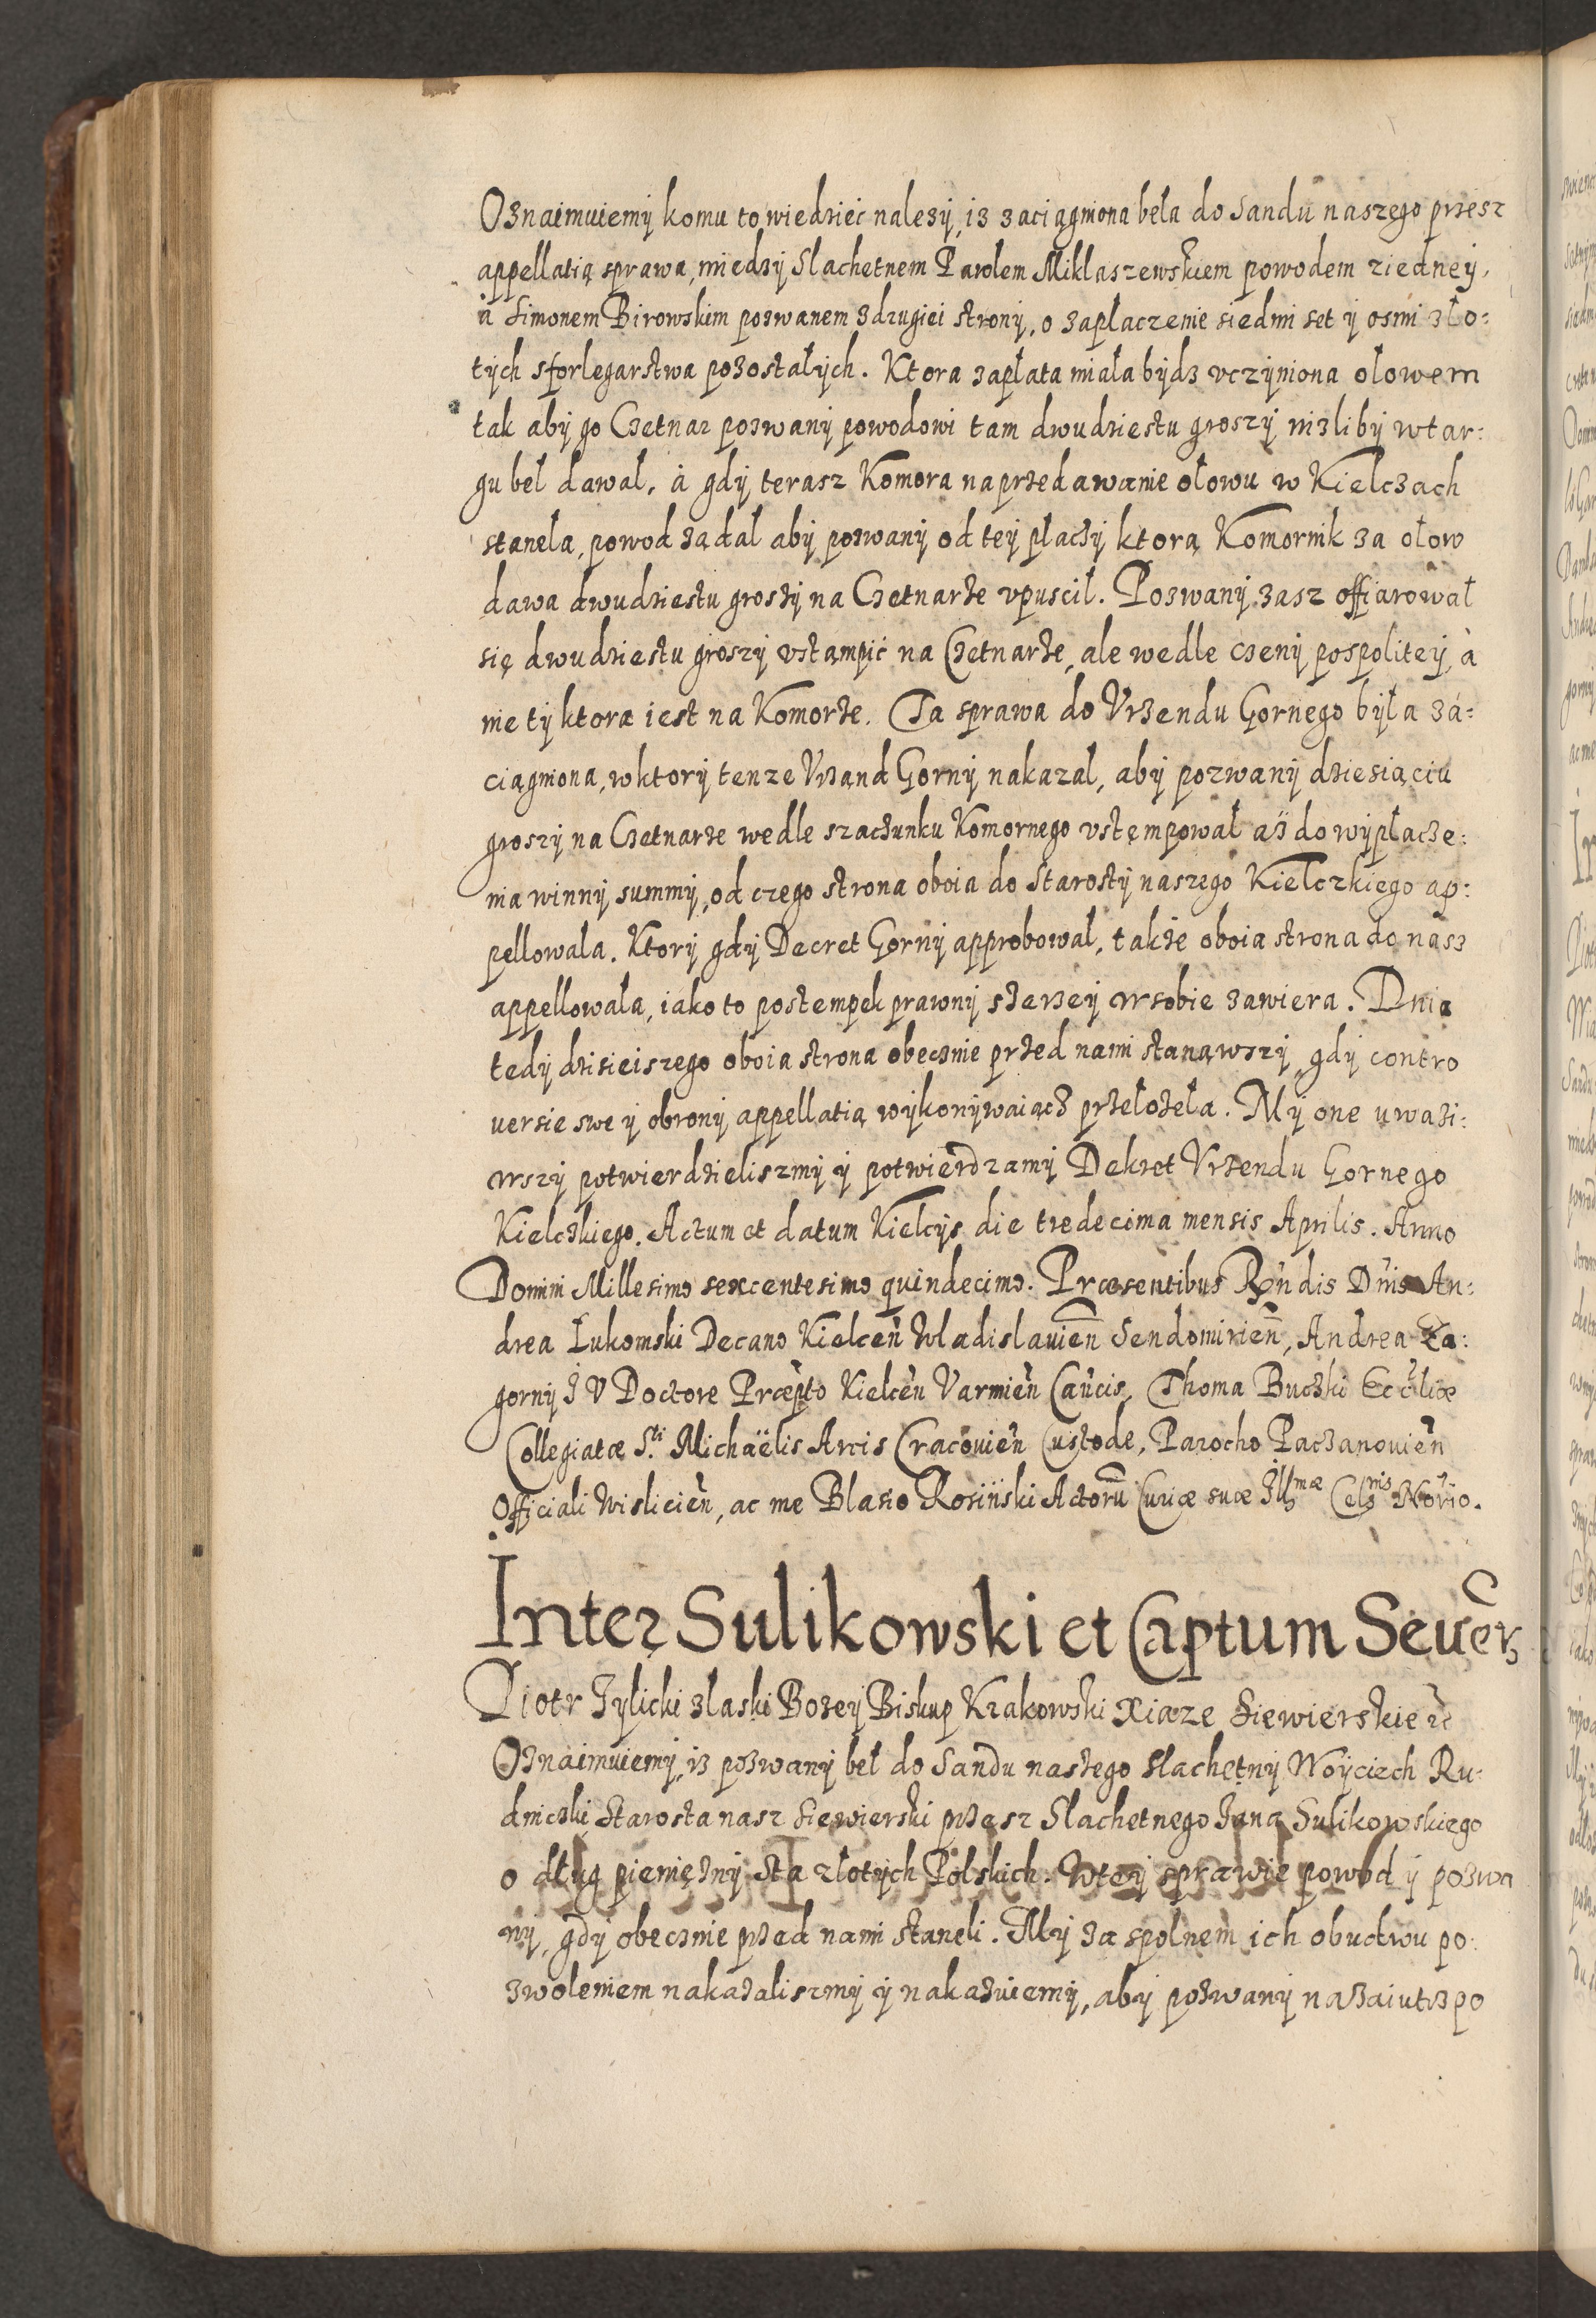 Oznaimuiemy komu to wiedzieć nalezy, iz zaciągniona beła do Sandu naszego przesz
appellatią sprawa, miedzy Slachetnem Pawłem Miklaszewskiem powodem ziedney,
a Simonem Birowskim pozwanem zdrugiei strony, o zapłaczenie siedmi set y osmi zło=
tych sforlegarstwa pozostałych. Ktora zapłata miała bydz vczyniona ołowem
tak aby go Czetnar pozwany powodowi tam dwudziestu groszy nizliby wtar=
gu beł dawał, à gdy terasz Komora na przedawanie ołowu w Kielczach
stanela, powod żądał aby pozwany od tey płaczy ktorą Komornik za ołow
dawa dwudziestu groszy na Czetnarze vpuscił. Pozwany zasz offiarował
się dwudziestu groszy vstąmpić na Czetnarze, ale wedle czeny pospolitey, à
nie ty ktora iest na Komorze. Ta sprawa do Vrzendu Gornego była zá=
ciągniona, wktory tenze Vrząnd Gorny nakazał, aby pozwany dziesiąciu
groszy na Czetnarze wedle szaczunku Komornego vstępował aż do wypłacze=
nia winny summy, od czego strona oboia do Starosty naszego Kielczkiego ap=
pellowala. Ktory gdy Decret Gorny approbował, takze oboia strona do nasz
appellowała, iako to postempek prawny szerzey wsobie zawiera. Dnia
tedy dzisieiszego oboia strona obecznie przed nami stanąwszy, gdy contro
uersie swe y obrony appellatią wykonywaiącz przełożeła. My one uwazi=
wszy potwierdzieliszmy y potwierdzamy Dekret Vrzendu Gornego
Kielczkiego. Actum et datum Kielcys die tredecima mensis Aprilis. Anno
Domini Millesimo sexcentesimo quindecimo. Præsentibus Rndis Dnis An=
drea Łukomski Decano Kielceñ Wladislauieñ Sendomirieñ, Andrea Za=
gorny J V Doctore Præpto Kielceñ Varmieñ Cancis, Thoma Buczki Eccliæ
Collegiatæ Sti Michaëlis Arcis Cracouieñ Custode, Parocho Paczanouieñ
Officiali Wislicieñ, ac me Blasio Rosiński Actorũ Curiæ suæ Illmæ Celsnis Norio.
Inter Sulikowski et Captum Seuer
Piotr Tylicki zlaski Bozey Biskup Krakowski Xiaze Siewierskie etc
Oznaimuiemy, iz pozwany beł do Sandu naszego Slachetny Woyciech Ru=
dniczki Starosta nasz Siewierski przesz Slachetnego Jana Sulikowskiego
o dług pieniężny sta złotych Polskich. Wtey sprawie powod y pozwa
ny, gdy obecznie przed nami staneli. My za spolnem ich obudwu po=
zwoleniem nakazaliszmy y nakazuiemy, aby pozwany nazaiutrz po